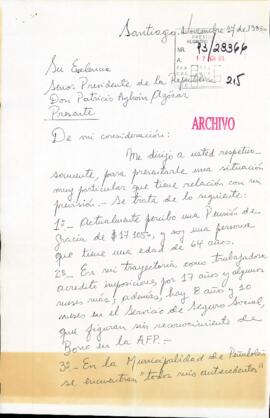 Santiago, Noviembre 27 de 1993.-
NR. 93/28366
ARCHIVO
215
Su Excelencia
Señor Presidente de la República
Don Patricio Aylwin Azócar
Presente
De mi consideración:
Me dirijo a usted respetuo-
samente, para presentarle una situación
muy particular que tiene relación con mi
previsión.- Se trata de lo siguiente:
1º- Actualmente percibo una Pensión de
Gracia de $17.105.- y soy una persona
que tiene una edad de 64 años.
2º- En mi trayectoria, como trabajadora
acredito imposiciones por 17 años y algunos
meses más; además, hay 8 años y 10
meses en el Servicio de Seguro Social,
que figuran sin reconocimiento de
Bono en la AFP.-
3º- En la Municipalidad de Peñalolén
se encuentran "todos mis antecedentes"